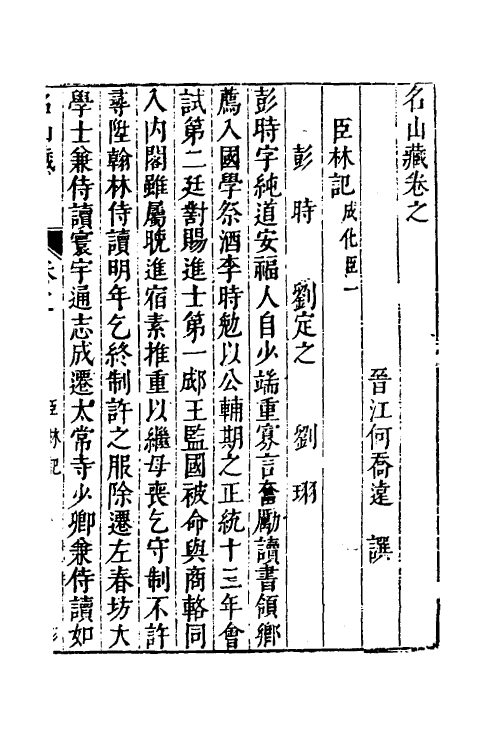 名山藏卷之
晉江何喬遠 譔
臣林記 成化臣一
彭時 劉定之 劉珝
彭時字純道安福人自少端重寡言奮勵讀書領鄉
薦入國學祭酒李時勉以公輔期之正統十三年會
試第二廷對賜進士第一郕王監國被命與商輅同
入內閣雖屬晚進宿素推重以繼母喪乞守制不許
尋陞翰林侍讀明年乞終制許之服除遷左春坊大
學士兼侍讀寰宇通志成遷太常寺少卿兼侍讀如
名山藏 卷之 臣林記